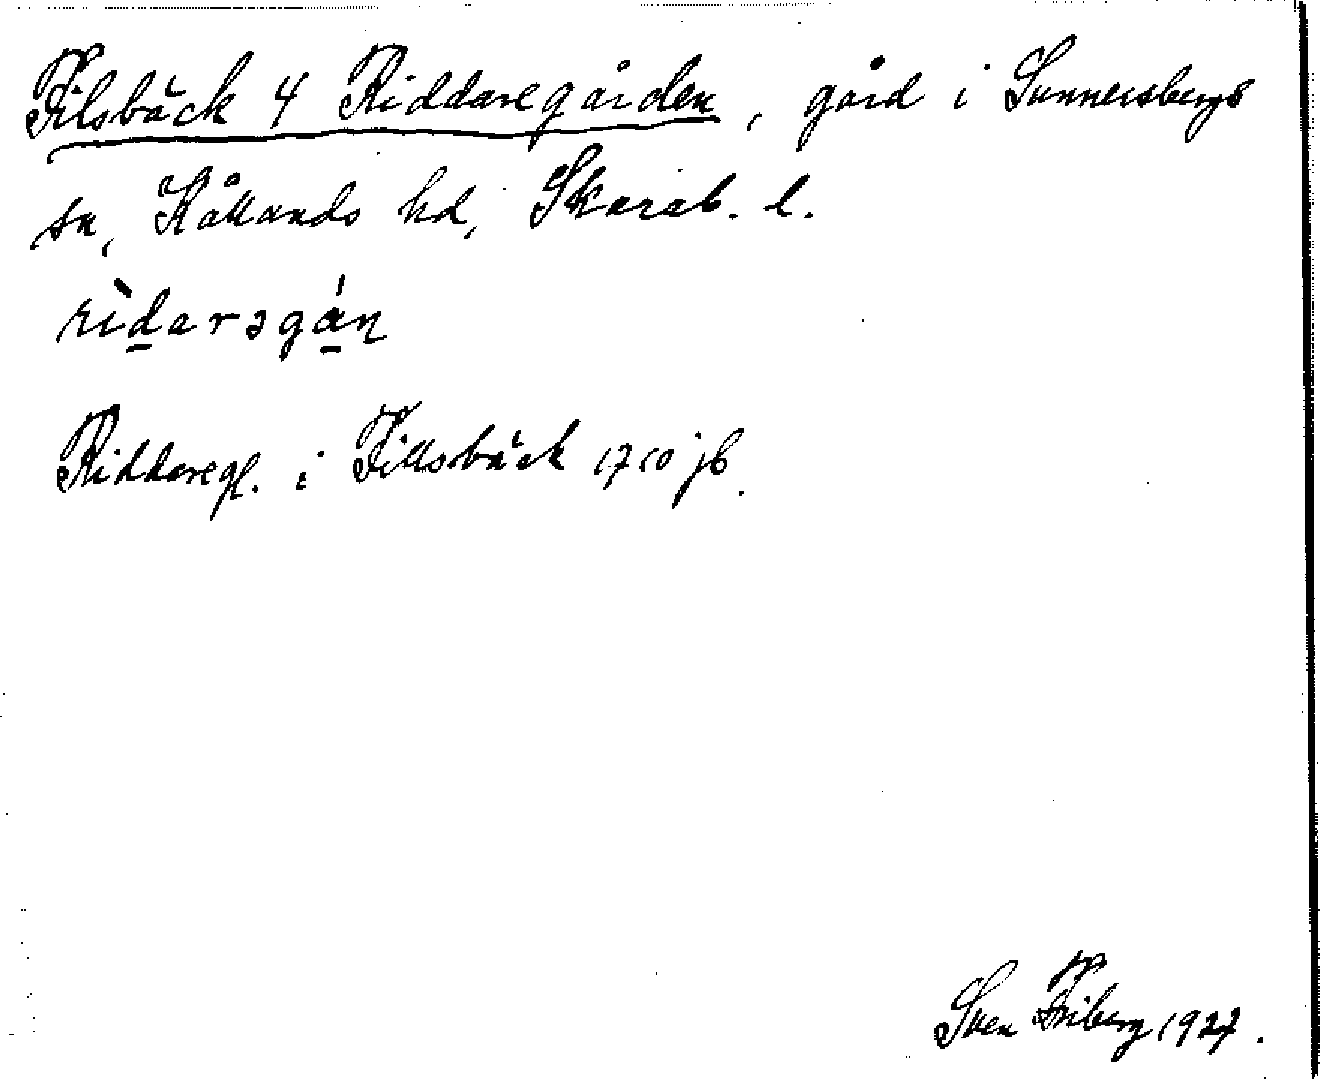 Filsbäck 4 Riddaregården, gård i Sunnersbergs
sn, Kållands hd, Skarab. l.
rìdarəgán
Riddaregl. i Fillsbäck 1710 jb.
Sven Friberg 1927.